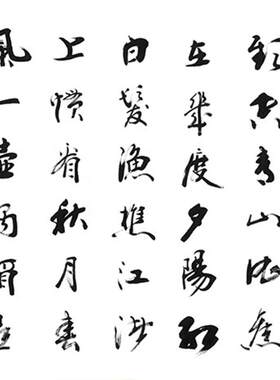 頭空青山依舊
在幾度夕陽紅
白髮漁樵江渚
上慣看秋月春
風一壺濁